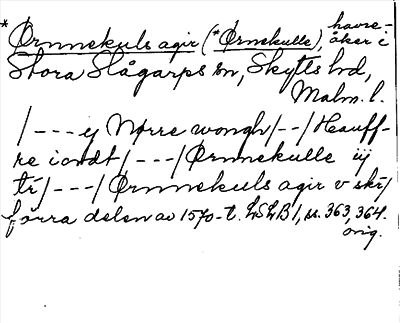 *Ørnnekuls agir (*Ørnekulle), havre-
åker i
Stora Slågarps sn, Skytts hd,
Malm. l.
/---ej Nørre wongh/--/Hauff-
re iordt/---/Ørnnekulle iij
tr/---/Ørnnekuls agir v skr/
förra delen av 1570-t. LSLB 1, s. 363, 364.
orig.